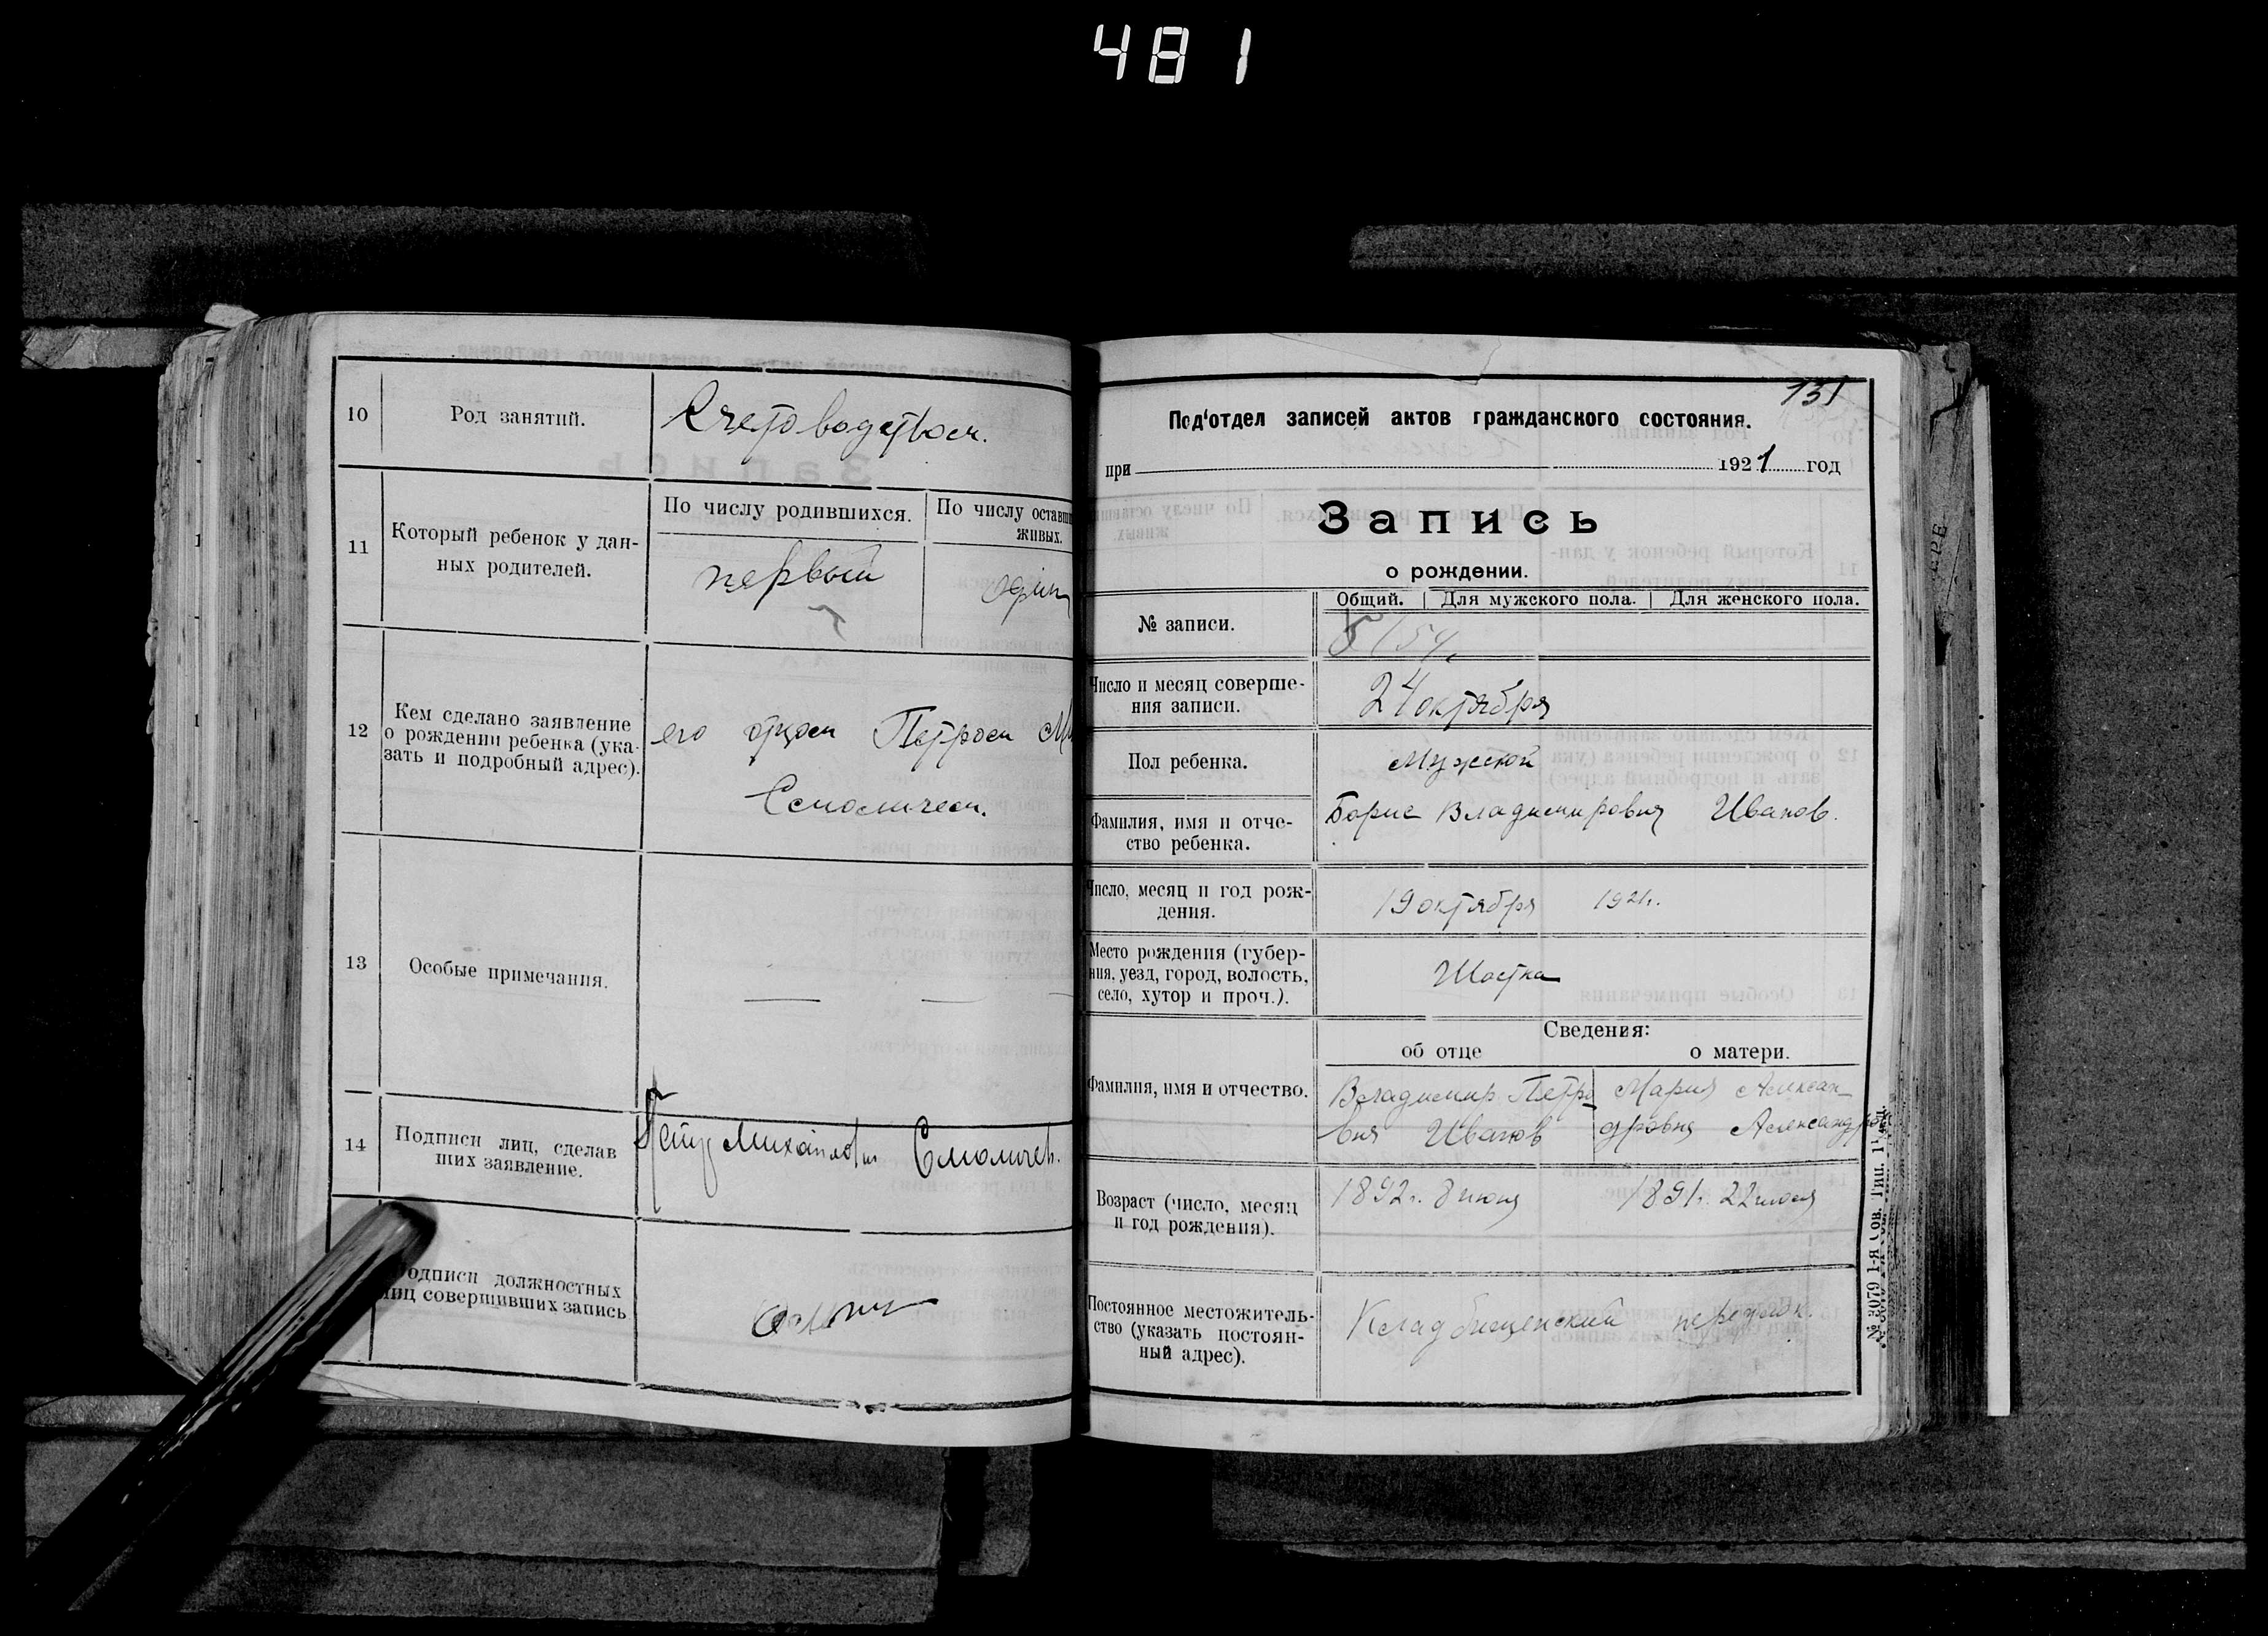 481
10
Род занятий.
Счетоводством.
11
Который ребенок у дан-
ных родителей.
По числу родившихся.
По числу оставш
живых.
первый
один
12
Кем сделано заявление
о рождении ребенка (ука-
зать и подробный адрес).
его отцом Петром Ми
13
Особые примечания.
14
Подписи лиц, сделав
ших заявление.
Петр Михайлович
одписи должностных
лиц совершивших запись
131
Под'отдел записей актов гражданского состояния.
при 1921 год
Запись
о рождении.
№ записи.
Общий. Для мужского пола. Для женского пола.
Число и месяц соверше-
ния записи.
24 октября
Пол ребенка.
Мужской
Фамилия, имя и отче-
ство ребенка.
Борис Владимирович Иванов.
Число, месяц и год рож-
дения.
19 октября 1921г.
Место рождения (губер-
ния, уезд, город, волость,
село, хутор и проч.).
Шостка
Сведения:
об отце
о матери.
Фамилия, имя и отчество.
Владимир Петро
вич Иванов
Мария Алексан-
дровна Александро
Возраст (число, месяц
и год рождения).
1892г. 8 июня
1891г. 22 июля
Постоянное местожитель-
ство (указать постоян-
ный адрес).
Кладбищенский
№ 3079 1-я Сов. Тип.